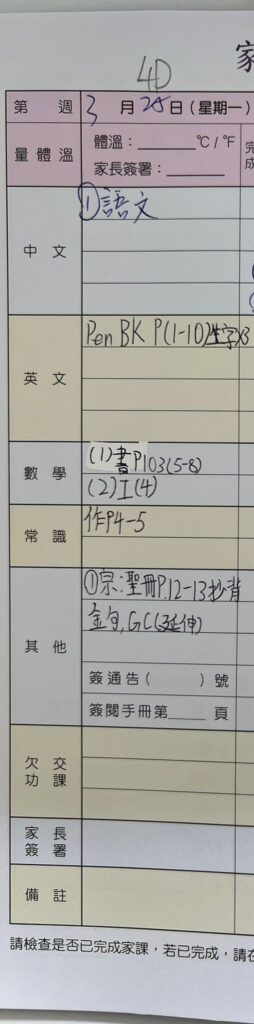 4D
家
第 週 3 月 25 日 (星期一)
量體溫 體溫：______ °C / °F 完
家長簽署：______ 成
中文 ①語文
英文 Pen BK P(1-10)生字x3
數學 (1)書P103(5-8)
(2)工(4)
常識 作P4-5
其他 ①宗:聖冊P.12-13抄背
金句,GC(延伸)
簽通告( ) 號
簽閱手冊第____ 頁
欠交功課
家長簽署
備註
請檢查是否已完成家課，若已完成，請在